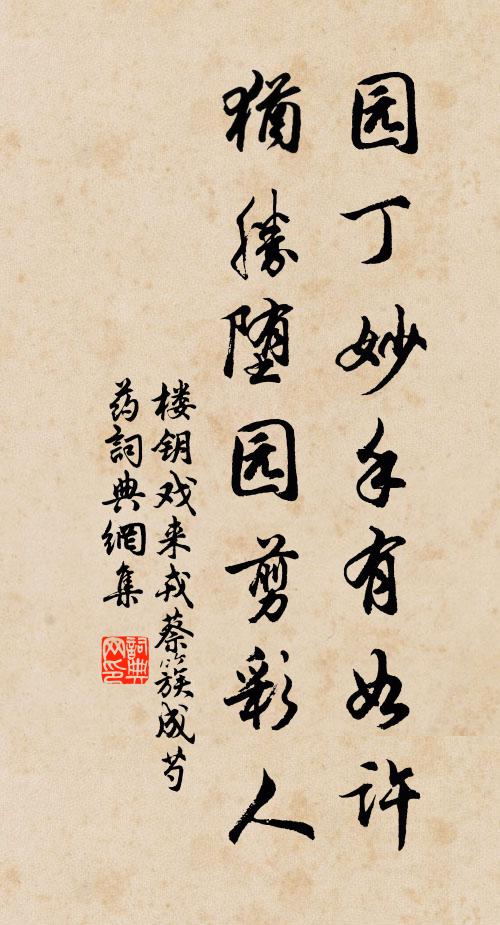 园丁妙手有如许
猶勝堕园剪彩人
楼钥戏来戎蔡簇成芍
药詞典網集
詞典
网印